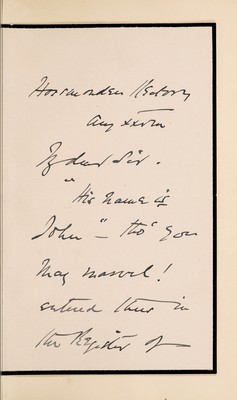 Horsmonden Rectory
Aug xxviii
My dear Sir.
"His name is
John" – tho' you
May marvel!
entered thus in
the Register of